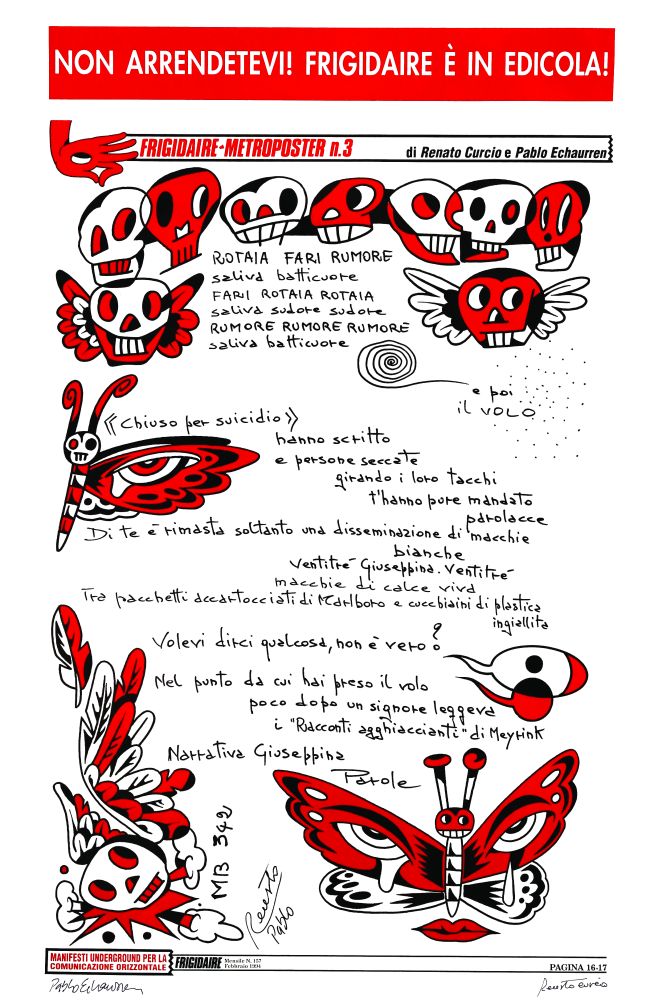 NON ARRENDETEVI! FRIGIDAIRE È IN EDICOLA!
FRIGIDAIRE-METROPOSTER n.3
di Renato Curcio e Pablo Echaurren
ROTAIA FARI RUMORE
saliva batticuore
FARI ROTAIA ROTAIA
saliva sudore sudore
RUMORE RUMORE RUMORE
saliva batticuore
e poi
il VOLO
《Chiuso per suicidio》
hanno scritto
e persone seccate
girando i loro tacchi
t'hanno pure mandato
parolacce
Di te è rimasta soltanto una disseminazione di macchie
bianche
Ventitré Giuseppina. Ventitré
macchie di calce viva
Tra pacchetti accartocciati di Marlboro e cucchiaini di plastica
ingiallita
Volevi dirci qualcosa, non è vero?
Nel punto da cui hai preso il volo
poco dopo un signore leggeva
i "Racconti agghiaccianti" di Meyrink
Narrativa Giuseppina
Parole
MB 342
Renato
Pablo
MANIFESTI UNDERGROUND PER LA
COMUNICAZIONE ORIZZONTALE
FRIGIDAIRE
Mensile N. 157
Febbraio 1994
PAGINA 16-17
Pablo Echaurren
Renato Curcio